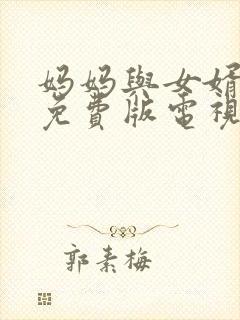 妈妈與女婿
免費版電視
郭素梅